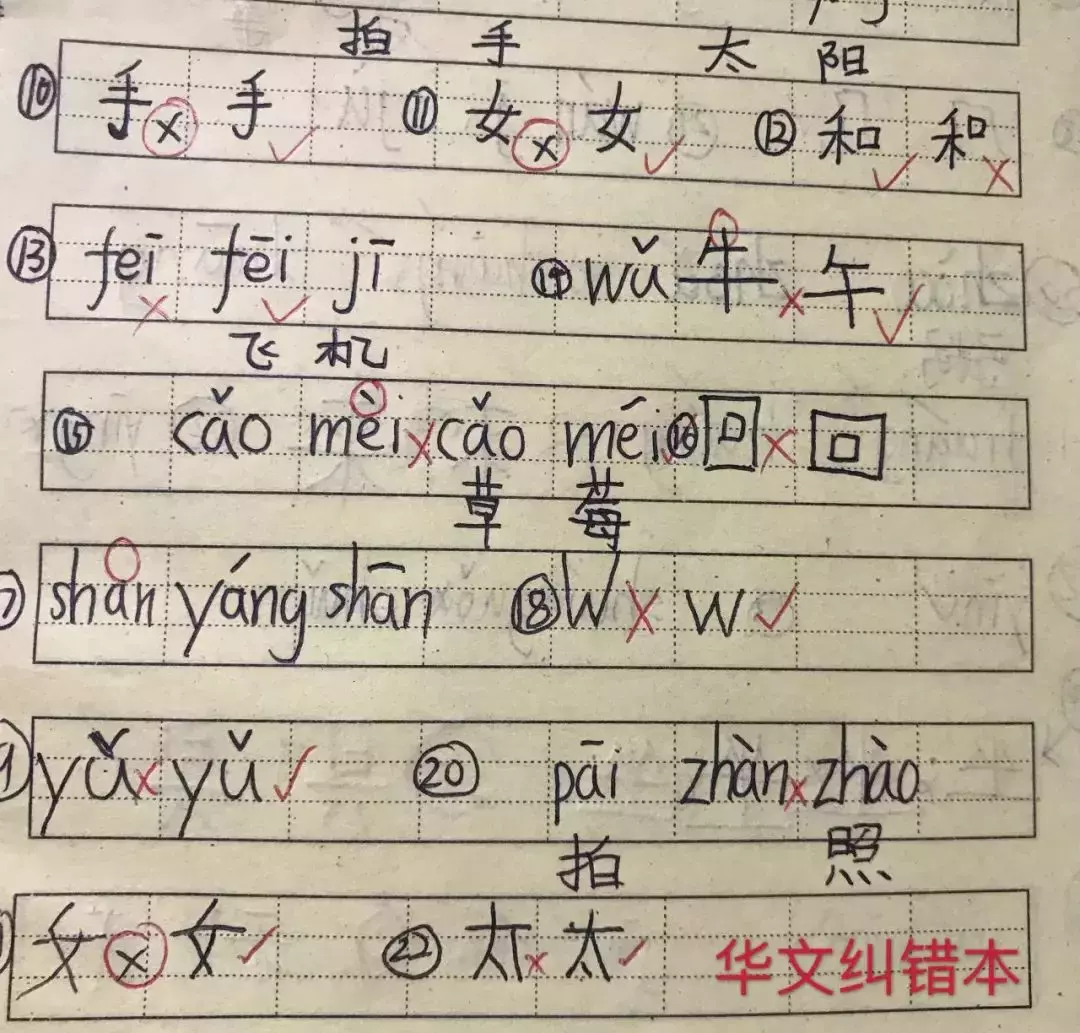 拍 手 太 阳
⑩ 手 × 手 ✓ ⑪ 女 × 女 ✓ ⑫ 和 ✓ 和 ×
⑬ feī × fēi ✓ jī ⑭ wǔ 牛 × 午 ✓
飞 机
⑮ cǎo mèi × cǎo méi ⑯ 回 × 回
草 莓
shan yáng shān ⑱ W × w ✓
yǔ × yǔ ✓ ⑳ pāi zhàn × zhào
拍 照
女 × 女 ✓ ㉒ 太 × 太 ✓
华文纠错本